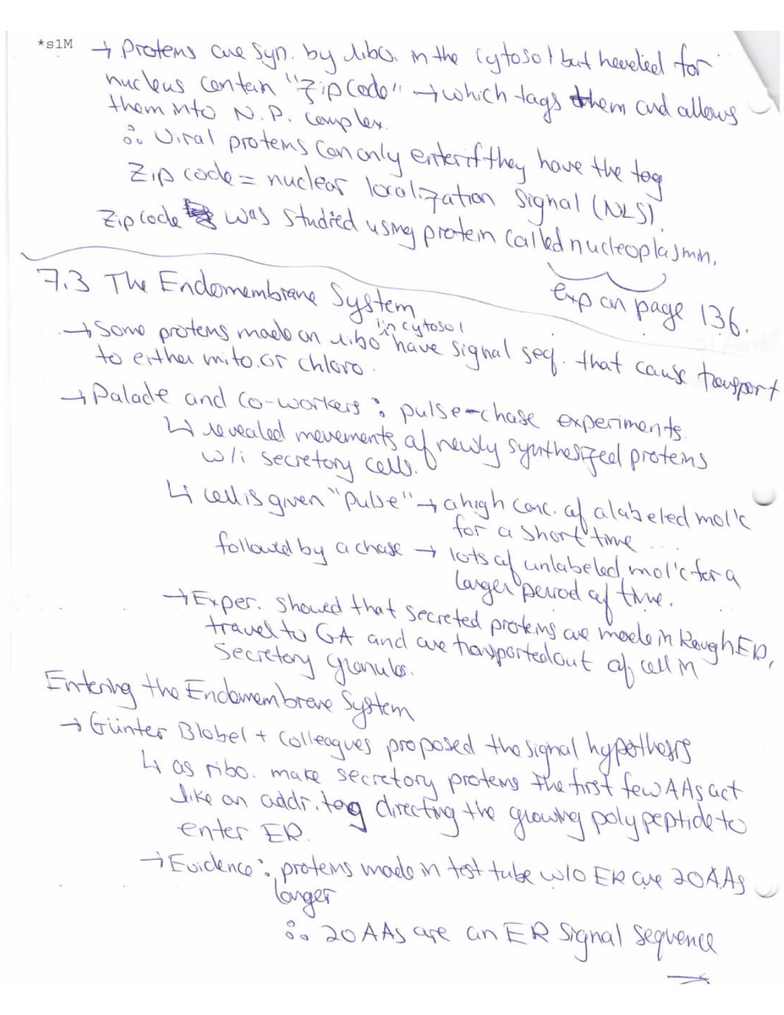 *s1M
→ Proteins are syn. by ribo. in the cytosol but headed for
nucleus contain "zip code" → which tags them and allows
them into N.P. complex.
∴ viral proteins can only enter if they have the tag
Zip code = nuclear localization signal (NLS).
Zip code was studied using protein called nucleoplasmin.
exp on page 136.
7.3 The Endomembrane System
→ Some proteins made on ribo in cytosol have signal seq. that cause transport
to either mito. or chloro.
→ Palade and co-workers: pulse-chase experiments.
↳ revealed movements of newly synthesized proteins
w/i secretory cells.
↳ cell is given "pulse" → a high conc. of a labeled mol'c
for a short time ...
followed by a chase → lots of unlabeled mol'c for a
larger period of time.
→ Exper. showed that secreted proteins are made in Rough ER,
travel to GA and are transported out of cell in
secretory granules.
Entering the Endomembrane System
→ Günter Blobel + colleagues proposed the signal hypothesis
↳ as ribo. make secretory proteins the first few AAs act
like an addr. tag directing the growing polypeptide to
enter ER.
→ Evidence: proteins made in test tube w/o ER are 20 AAs
longer
∴ 20 AAs are an ER signal sequence
→